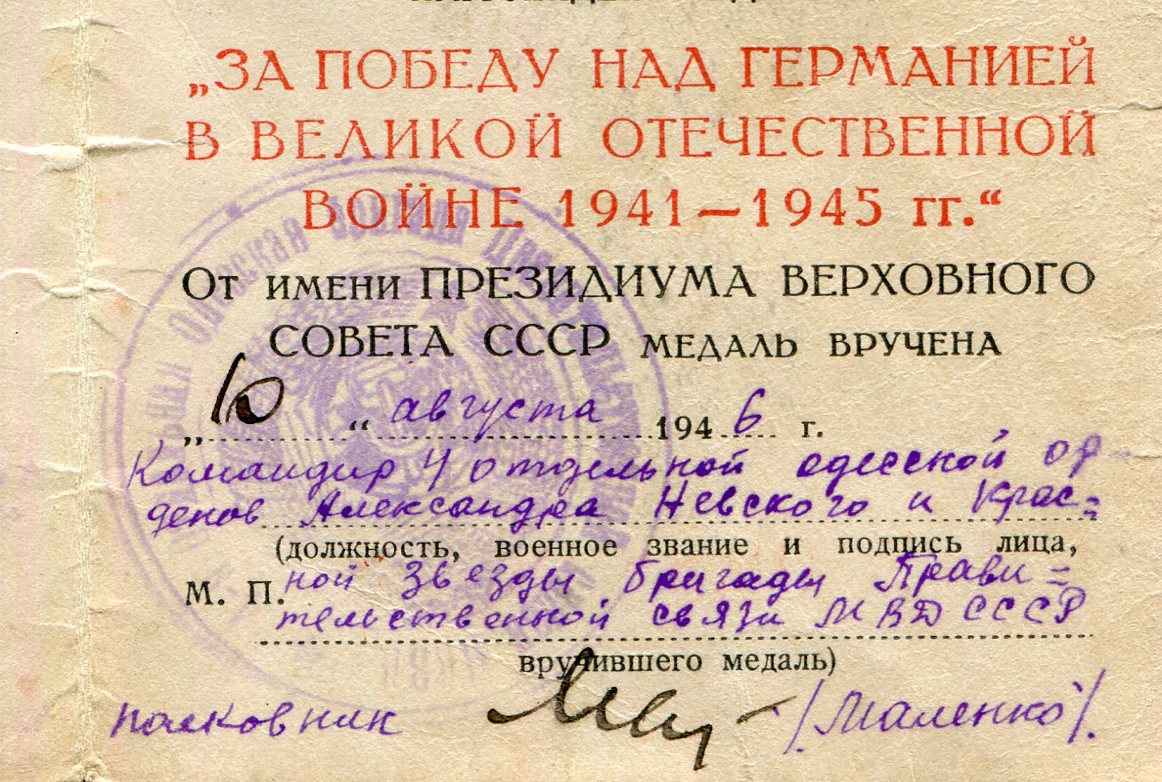 „ЗА ПОБЕДУ НАД ГЕРМАНИЕЙ
В ВЕЛИКОЙ ОТЕЧЕСТВЕННОЙ
ВОЙНЕ 1941—1945 гг.“
От имени ПРЕЗИДИУМА ВЕРХОВНОГО
СОВЕТА СССР МЕДАЛЬ ВРУЧЕНА
„10“ августа 1946 г.
Командир 4 отдельной одесской ор-
денов Александра Невского и Крас=
(должность, военное звание и подпись лица,
М. П. ной Звезды бригады Прави=
тельственной связи МВД СССР
вручившего медаль)
полковник /Маленко/.